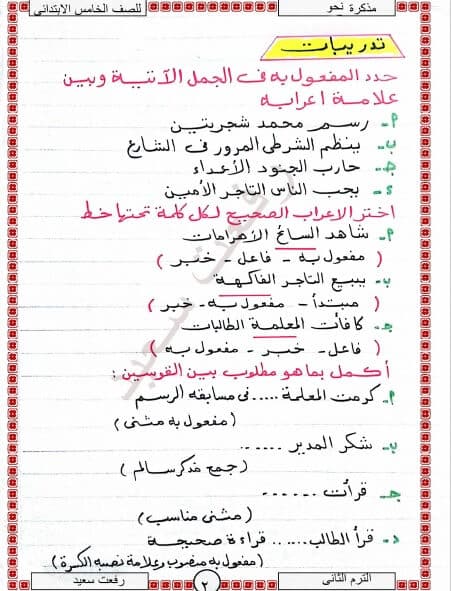 مذكرة نحو
للصف الخامس الابتدائى
تدريبات
حدد المفعول به فى الجمل الآتية وبين
علامة اعرابه
م- رسم محمد شجرتين
ب- ينظم الشرطى المرور فى الشارع
ج- حارب الجنود الأعداء
د- يحب الناس التاجر الأمين
اختر الاعراب الصحيح لكل كلمة تحتها خط
م- شاهد السائح الأهرامات
( مفعول به - فاعل - خبر )
ب- يبيع التاجر الفاكهة
( مبتدأ - مفعول به - خبر )
جـ- كافأت المعلمة الطالبات
( فاعل - خبر - مفعول به )
أكمل بما هو مطلوب بين القوسين :
م- كرمت المعلمة ..... فى مسابقه الرسم
( مفعول به مثنى )
ب- شكر المدير ......
( جمع مذكر سالم )
جـ- قرأت ......
( مثنى مناسب )
د- قرأ الطالب ...... قراءة صحيحة
( مفعول به منصوب وعلامة نصبه الكسرة )
رفعت سعيد
٢
الترم الثانى